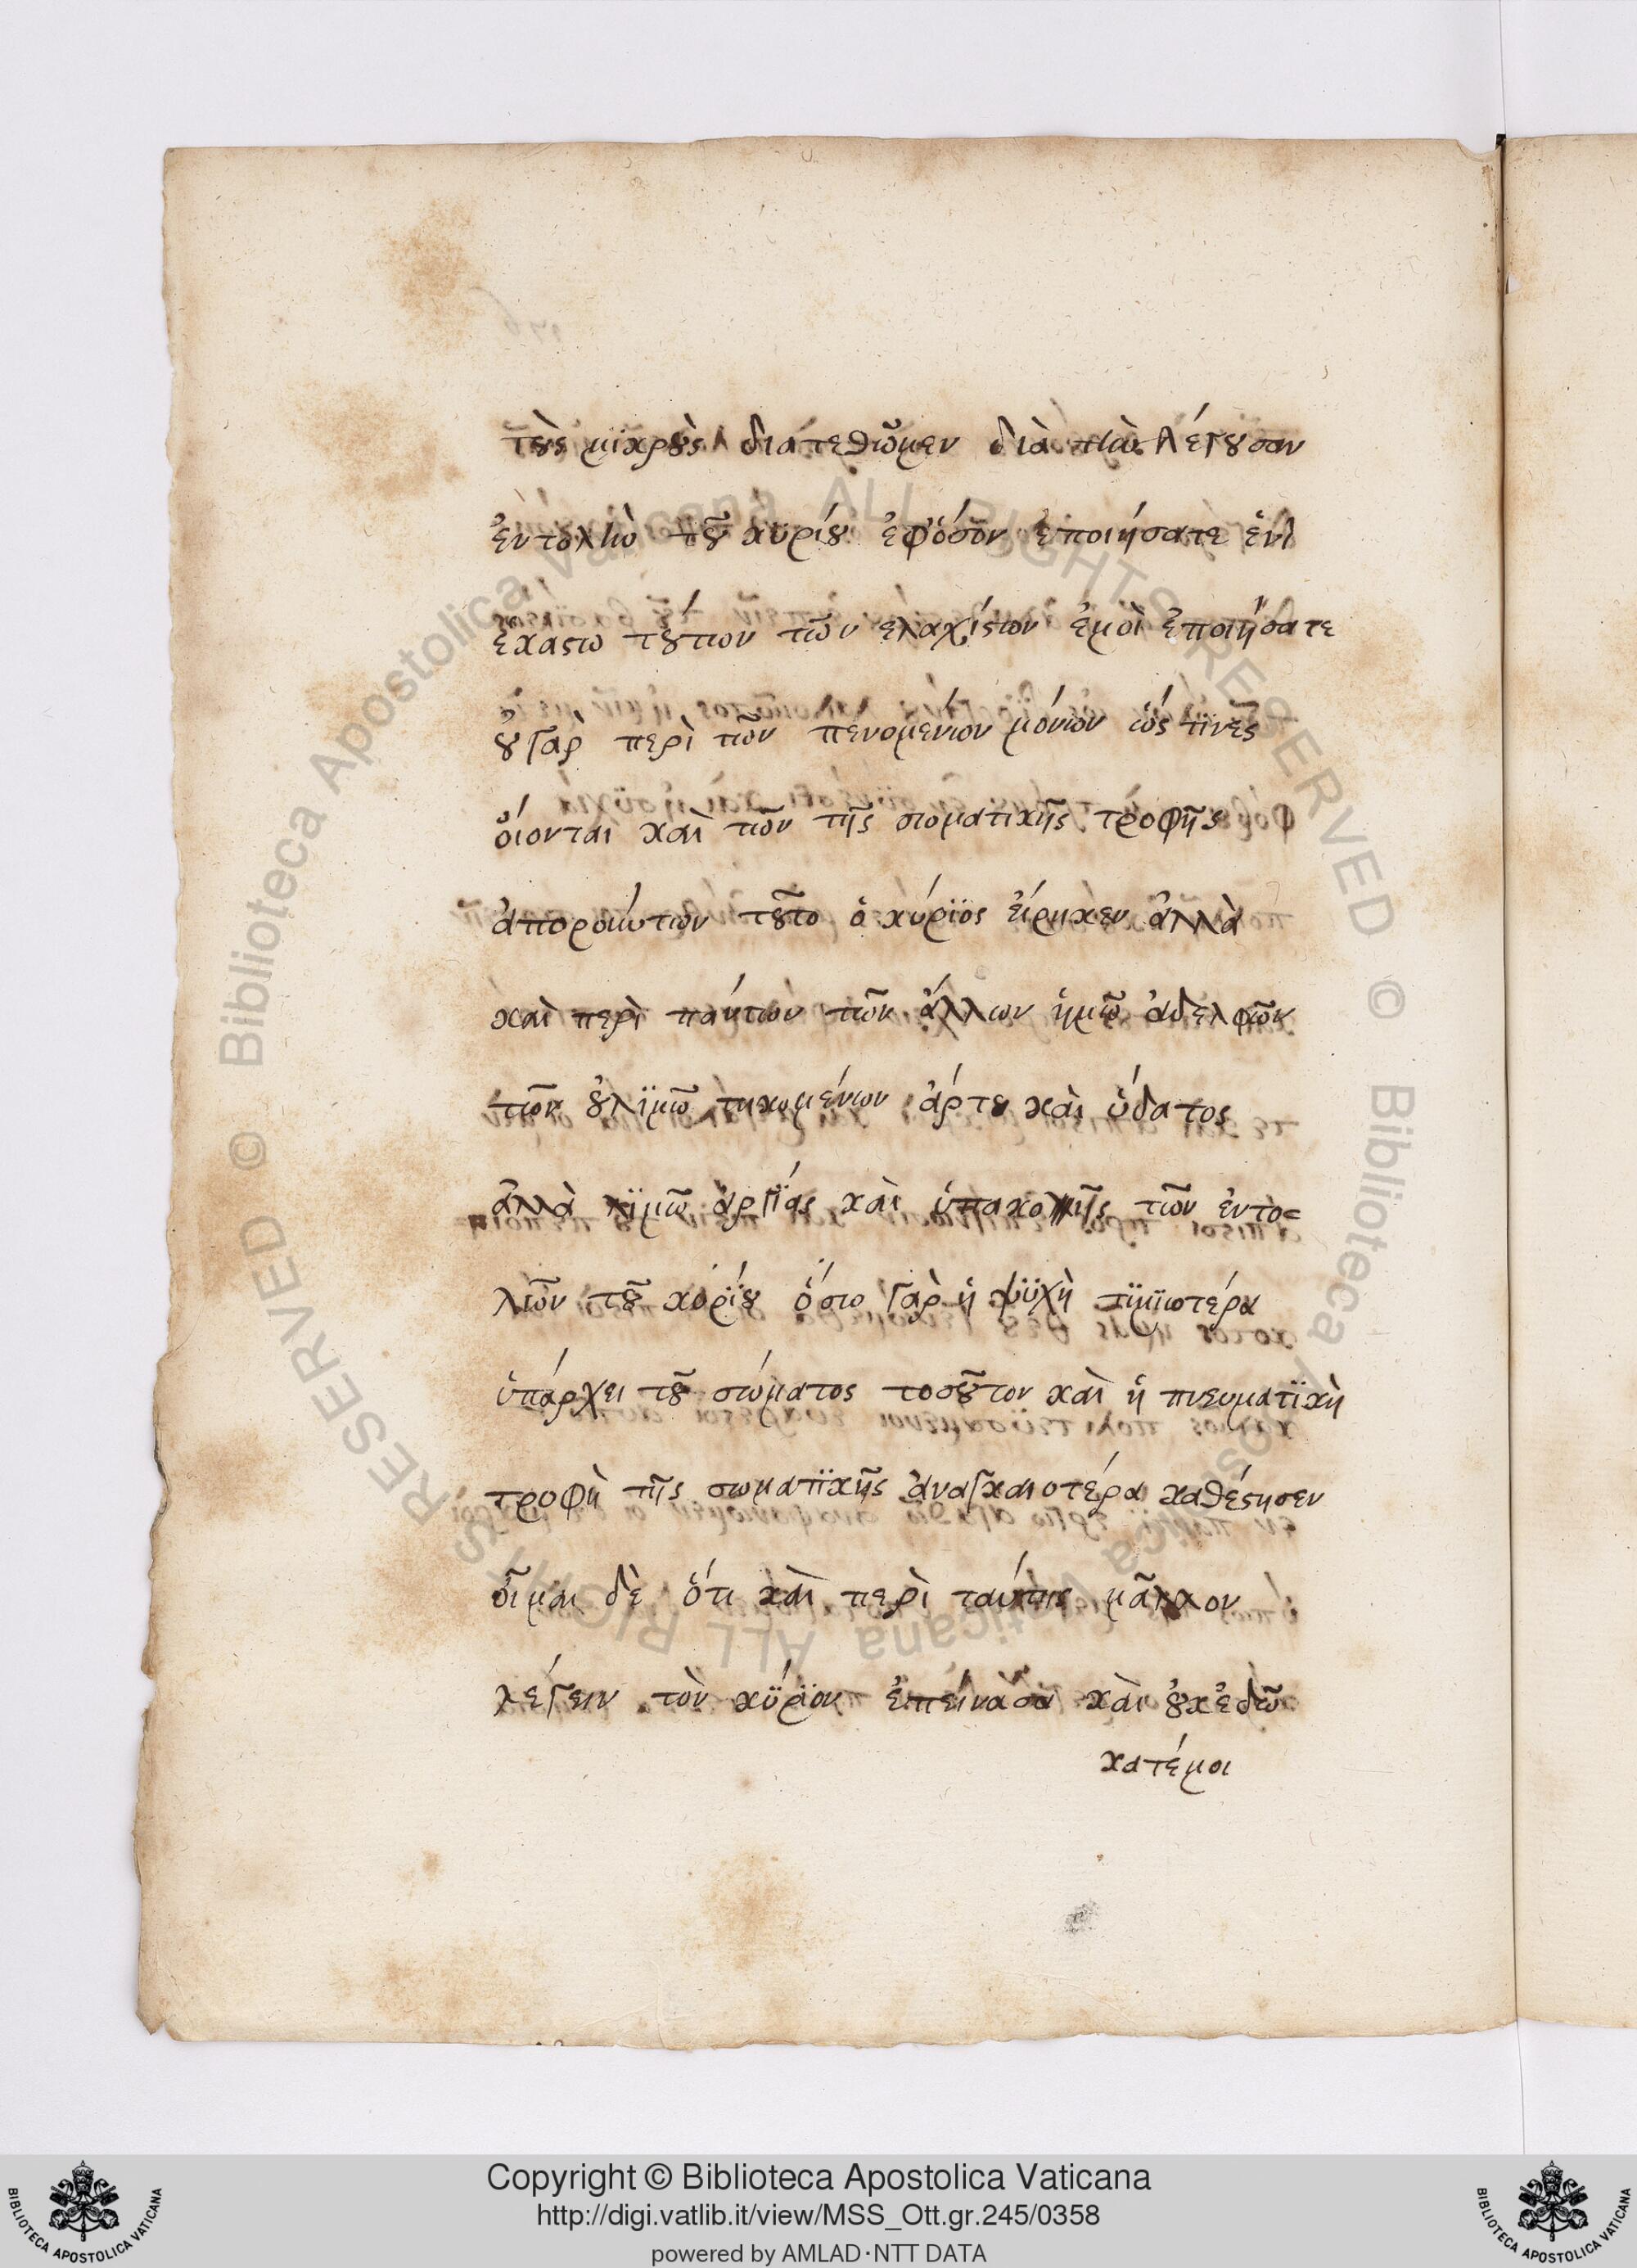 τοὺς μϊκροὺς διατεθῶμεν διὰ τὴν λέγουσαν
ἐντολὴν τοῦ κϋρίου ἐφόσον ἐποιήσατε ἑνὶ
ἑκαστω τούτων τῶν ελαχίστων ἐμοὶ ἐποιήσατε
οὐ γὰρ περὶ τῶν πενομένων μόνων ὡς τϊνὲς
οἴονται καὶ τῶν τῆς σωματικῆς τροφῆς
ἀπορούντων τοῦτο ὁ κύρϊος εἴρηκεν ἀλλὰ
καὶ περὶ πάντων τῶν ἄλλων ἡμῶ ἀδελφῶν
τῶν οὐ λϊμῶ τηκομένων ἄρτου καὶ ὕδατος
ἀλλὰ λϊμῶ ἀργΐας καὶ ὑπακοῆς τῶν ἐντο=
λῶν τοῦ κυρΐου ὅσω γὰρ ἡ ψϋχὴ τϊμϊωτέρα
ὑπάρχει τοῦ σώματος τοσοῦτον καὶ ἡ πνευματϊκὴ
τροφὴ τῆς σωματϊκῆς ἀναγκαιοτέρα καθέστησεν
οἶμαι δὲ ὅτι καὶ περὶ ταύτης μᾶλλον
λέγειν τὸν κϋρϊον ἐπείνασα καὶ οὐκ ἐδώ
κατέ μοι
Copyright © Biblioteca Apostolica Vaticana
http://digi.vatlib.it/view/MSS_Ott.gr.245/0358
powered by AMLAD·NTT DATA